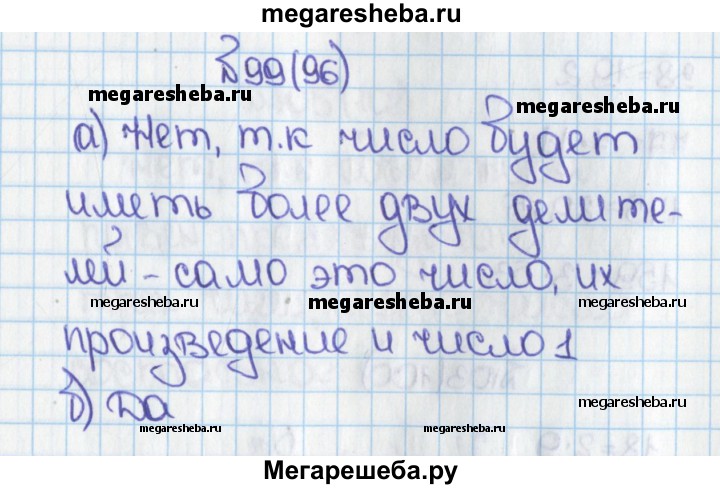 megaresheba.ru
№99(96)
megaresheba.ru
megaresheba.ru
а) Нет, т.к число будет
иметь более двух делите-
лей - само это число, их
megaresheba.ru
megaresheba.ru
megaresheba.ru
произведение и число 1
megaresheba.ru
б) Да
megaresheba.ru
megaresheba.ru
megaresheba.ru
Мегарешеба.ру